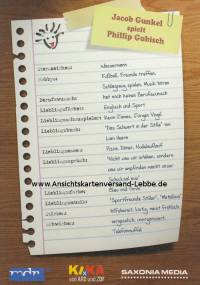 Jacob Gunkel
spielt
Phillip Gubisch
Sternzeichen Wassermann
Hobbys Fußball, Freunde treffen,
Schlagzeug spielen, Musik hören
Berufswunsch hat noch keinen Berufswunsch
Lieblingsfächer Englisch und Sport
Lieblingsschauspieler Kevin James,
Lieblingsbuch "Das Schwert in der Stille" von
Lian Hearn
Lieblingsessen Pizza, Döner, Nudelauflauf
Lieblingsspruch "Nicht was wir erleben, sondern
was wir empfinden macht unser
Schicksal aus"
© www.Ansichtskartenversand-Lebbe.de
Blau und Grün
"Sportfreunde Stiller", "Metallica"
hilfsbereit, lustig, meist fröhlich
Telefonmuffel
mdr
KI.KA
von ARD und ZDF
SAXONIA MEDIA